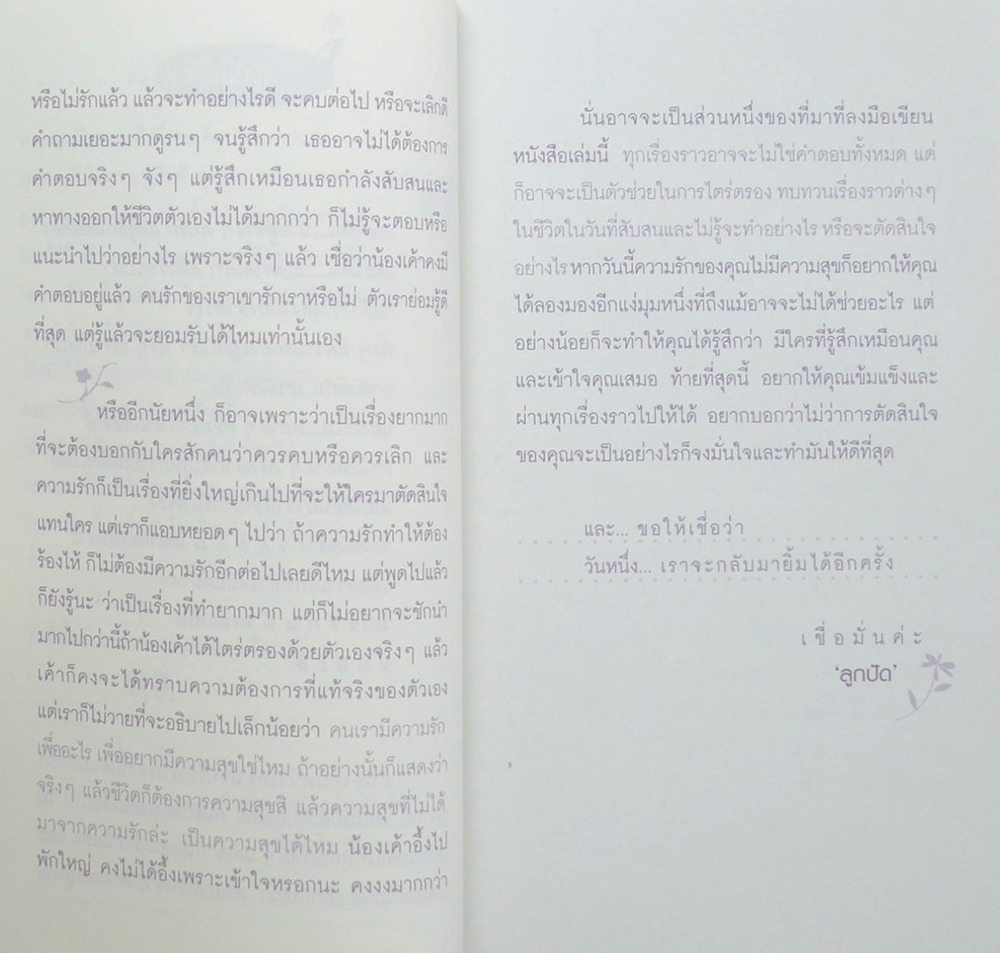 หรือไม่รักแล้ว แล้วจะทำอย่างไรดี จะคบต่อไป หรือจะเลิกดี
คำถามเยอะมากดูรนๆ จนรู้สึกว่า เธออาจไม่ได้ต้องการ
คำตอบจริงๆ จังๆ แต่รู้สึกเหมือนเธอกำลังสับสนและ
หาทางออกให้ชีวิตตัวเองไม่ได้มากกว่า ก็ไม่รู้จะตอบหรือ
แนะนำไปว่าอย่างไร เพราะจริงๆ แล้ว เชื่อว่าน้องเค้าคงมี
คำตอบอยู่แล้ว คนรักของเราเขารักเราหรือไม่ ตัวเราย่อมรู้ดี
ที่สุด แต่รู้แล้วจะยอมรับได้ไหมเท่านั้นเอง
หรืออีกนัยหนึ่ง ก็อาจเพราะว่าเป็นเรื่องยากมาก
ที่จะต้องบอกกับใครสักคนว่าควรคบหรือควรเลิก และ
ความรักก็เป็นเรื่องที่ยิ่งใหญ่เกินไปที่จะให้ใครมาตัดสินใจ
แทนใคร แต่เราก็แอบหยอดๆ ไปว่า ถ้าความรักทำให้ต้อง
ร้องไห้ ก็ไม่ต้องมีความรักอีกต่อไปเลยดีไหม แต่พูดไปแล้ว
ก็ยังรู้นะ ว่าเป็นเรื่องที่ทำยากมาก แต่ก็ไม่อยากจะชักนำ
มากไปกว่านี้ถ้าน้องเค้าได้ไตร่ตรองด้วยตัวเองจริงๆ แล้ว
เค้าก็คงจะได้ทราบความต้องการที่แท้จริงของตัวเอง
แต่เราก็ไม่วายที่จะอธิบายไปเล็กน้อยว่า คนเรามีความรัก
เพื่ออะไร เพื่ออยากมีความสุขใช่ไหม ถ้าอย่างนั้นก็แสดงว่า
จริงๆ แล้วชีวิตก็ต้องการความสุขสิ แล้วความสุขที่ไม่ได้
มาจากความรักล่ะ เป็นความสุขได้ไหม น้องเค้าอึ้งไป
พักใหญ่ คงไม่ได้อึ้งเพราะเข้าใจหรอกนะ คงงงมากกว่า
นั่นอาจจะเป็นส่วนหนึ่งของที่มาที่ลงมือเขียน
หนังสือเล่มนี้ ทุกเรื่องราวอาจจะไม่ใช่คำตอบทั้งหมด แต่
ก็อาจจะเป็นตัวช่วยในการไตร่ตรอง ทบทวนเรื่องราวต่างๆ
ในชีวิตในวันที่สับสนและไม่รู้จะทำอย่างไร หรือจะตัดสินใจ
อย่างไรหากวันนี้ความรักของคุณไม่มีความสุขก็อยากให้คุณ
ได้ลองมองอีกแง่มุมหนึ่งที่ถึงแม้อาจจะไม่ได้ช่วยอะไร แต่
อย่างน้อยก็จะทำให้คุณได้รู้สึกว่า มีใครที่รู้สึกเหมือนคุณ
และเข้าใจคุณเสมอ ท้ายที่สุดนี้ อยากให้คุณเข้มแข็งและ
ผ่านทุกเรื่องราวไปให้ได้ อยากบอกว่าไม่ว่าการตัดสินใจ
ของคุณจะเป็นอย่างไรก็จงมั่นใจและทำมันให้ดีที่สุด
และ... ขอให้เชื่อว่า
วันหนึ่ง... เราจะกลับมายิ้มได้อีกครั้ง
เชื่อมั่นค่ะ
'ลูกปัด'